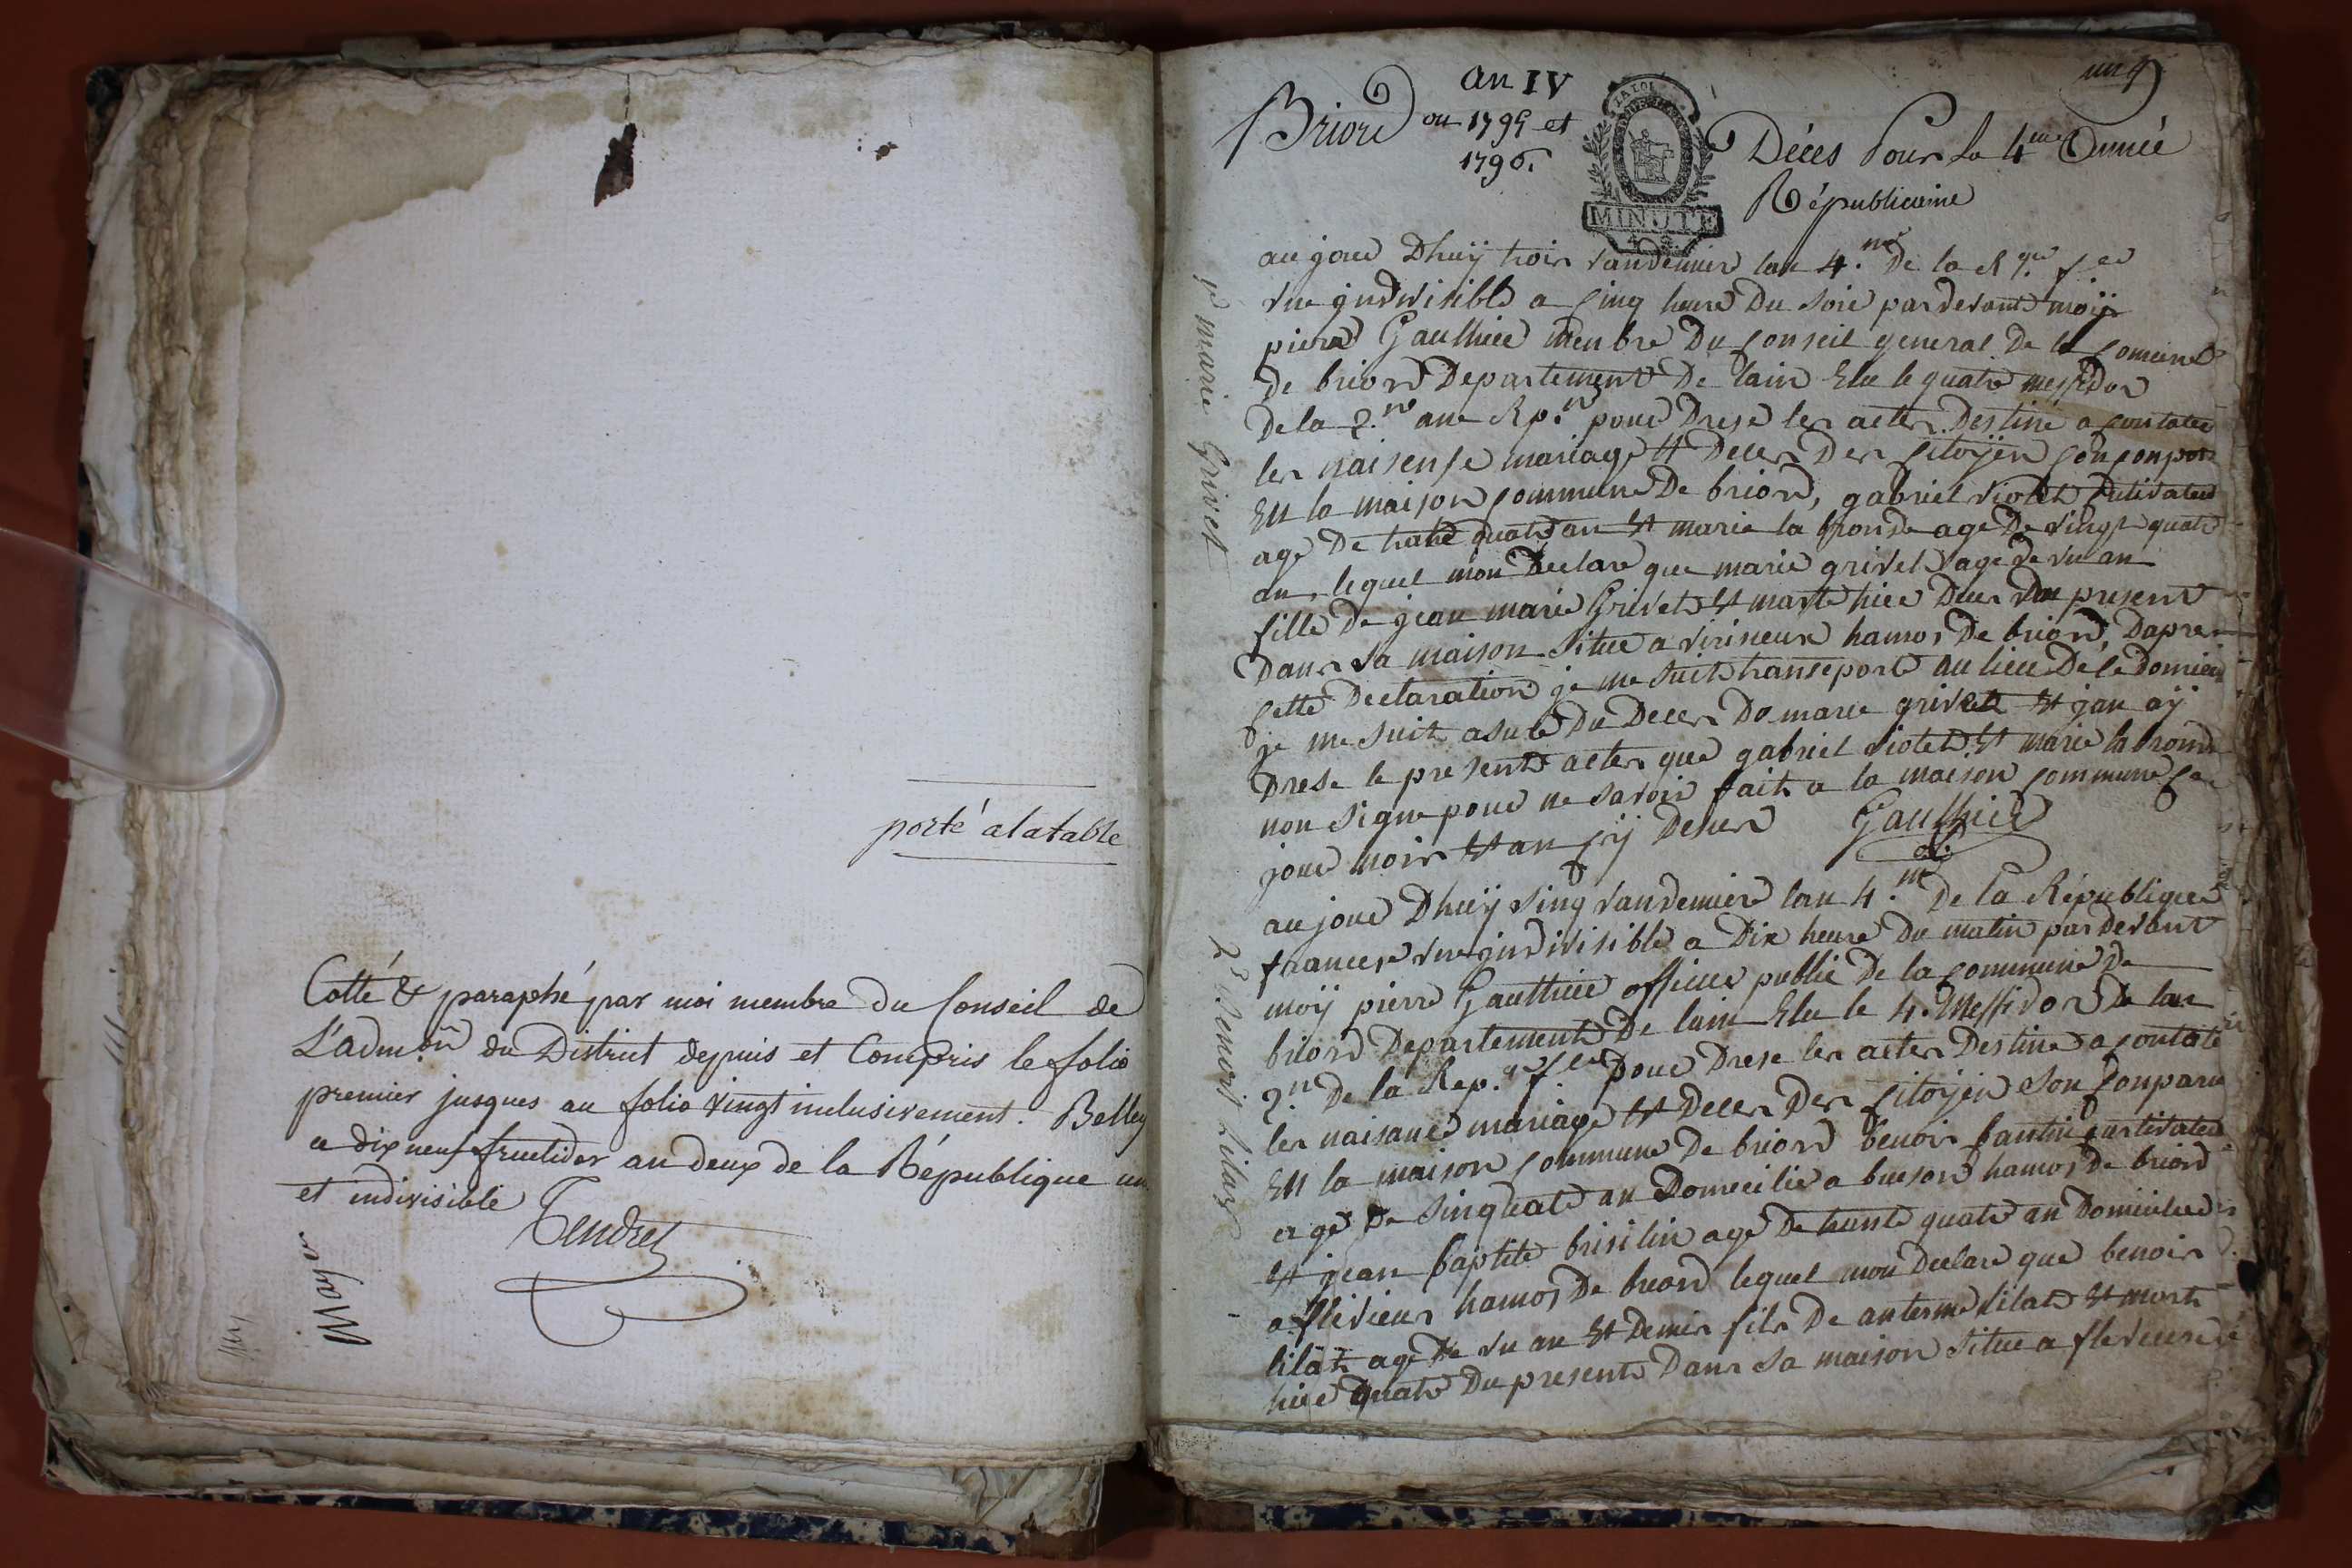 porté a la table
Cotté & paraphé par moi membre du Conseil de
L'admon du District depuis et Compris le folio
premier jusques au folio vingt inclusivement. Belley
ce dix neuf fructidor an deux de la République une
et indivisible
Tendret
Mayer
Briord
an IV
ou 1795 et
1796.
LA LOI
MINUTE
Déces Pour La 4me Année
Républicaine
1er marie Grivet
au jour Dhuÿ trois vandemier lan 4.me De la Rque fse
vne jndivisible a sinq heure Du soir pardevant moÿ
piere Gaulthier menbre Du Conseil general De la Comune
De briord Departement De lain Elu le quatre messidor
De la 2.me ane Rp.ne pour Drese les actes Destine a Contater
les naisense mariage et Deces Des sitoÿen son Conpar
En la maison Commune De briord, gabriel violet Cultivateur
age De trante quatre an et marie la fronde age De vingt quatre
an, lequel mon Declare que marie grivet age de vn an
fille De jean marie Grivet et morte hier Deux du present
Dans sa maison situe a virineux hamos De briord, Dapres
sette Declaration je me suit transeporte au lieu De se Domicile
je me suit asure Du Deces De marie grivet et jan aÿ
Drese le present actes que gabriel violet et marie la fronde
non signe pour ne savoir fait a la maison Commune se
jour mois et an sÿ Desus Gaulthier
2e Benoit Lilaz
au jour Dhuÿ sinq vandemiere lan 4.me De la République
francese vne jndivisible a Dix heure Du matin pardevant
moÿ pierre Gaulthier officier public De la Commune De
briord Departement De lain Elu le 4. Messidor De lan
2.me De la Rep.que fse pour Drese les actes Destine a Contate
les naisance mariage et Deces Des sitoÿen son Conparu
En la maison Commune De briord benoit fantin Curtivateur
age De sinquate an Domicilie a buison hamos De briord
et jean baptite brisilin age De trante quatre an Domicilie
a flevieux hamos De briord lequel mon Declare que benois
lilat age De vn an et Demis fils De anterme lilat et mort
hier quatre Du present Dans sa maison situe a flevieux